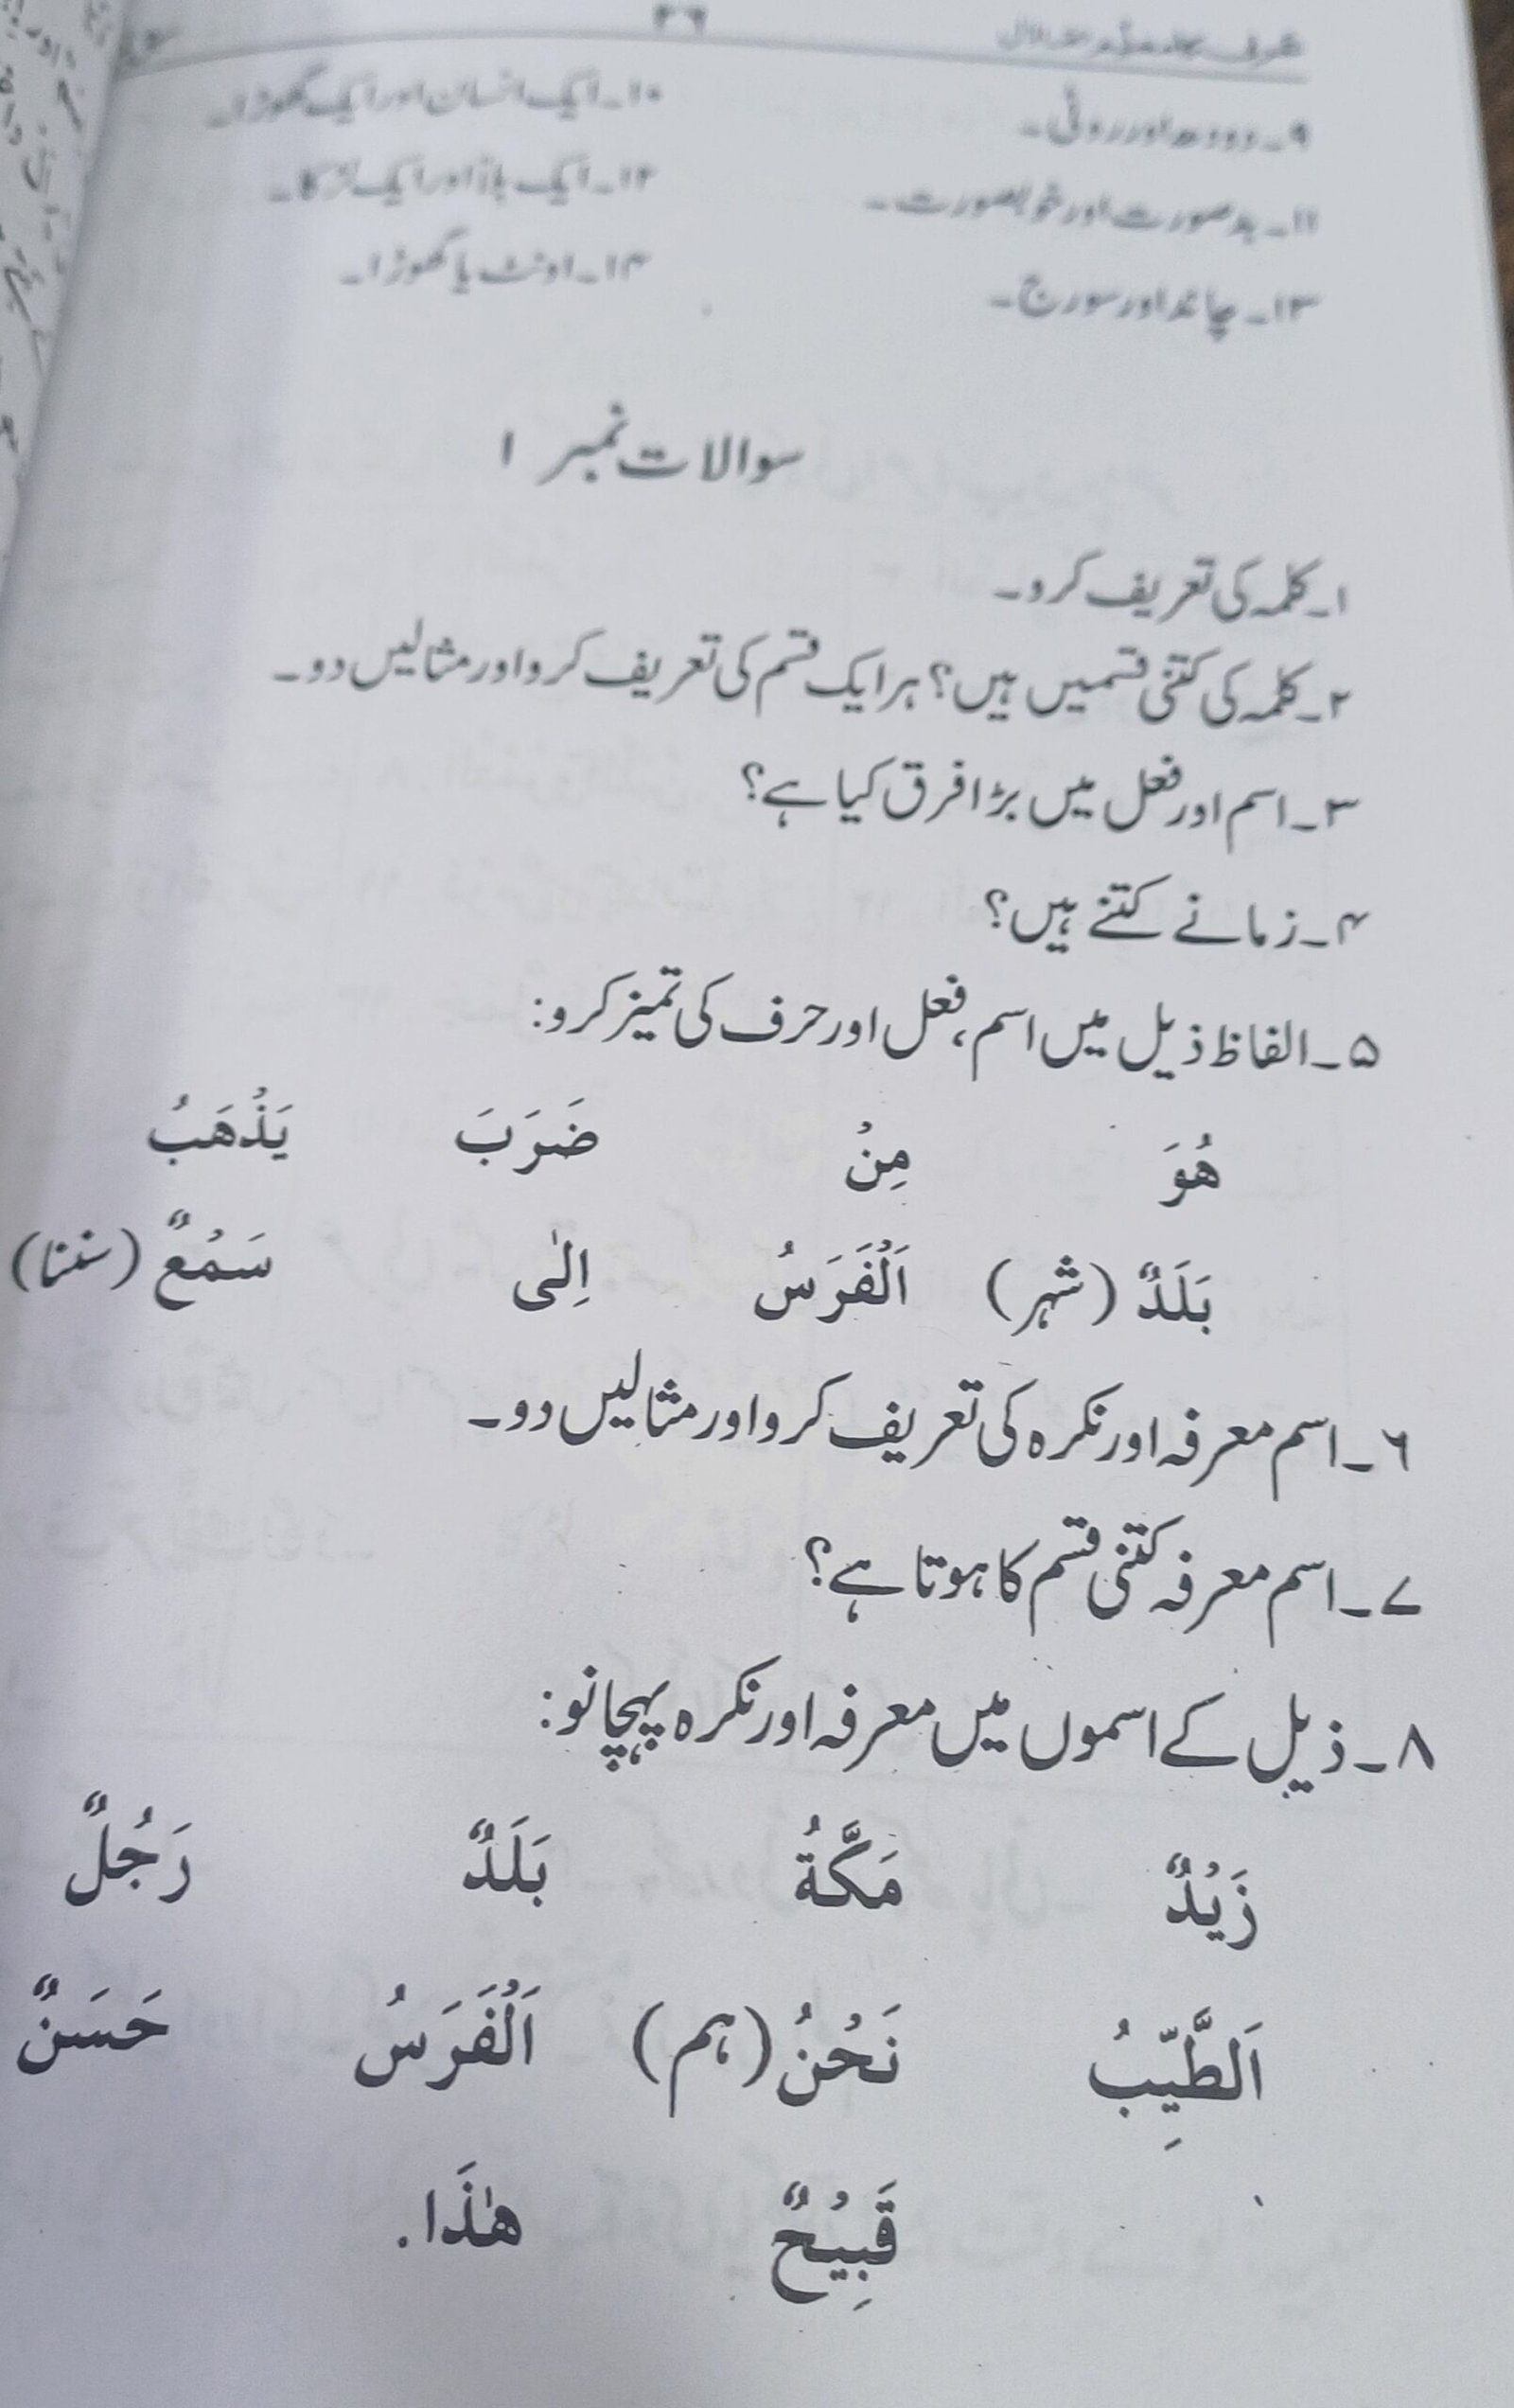 ۳۶
۹۔ دودھ اور روٹی۔ ۱۰۔ ایک انسان اور ایک گھوڑا۔
۱۱۔ بدصورت اور خوبصورت۔ ۱۲۔ ایک باز اور ایک لڑکا۔
۱۳۔ چاند اور سورج۔ ۱۴۔ اونٹ یا گھوڑا۔
سوالات نمبر ۱
۱۔ کلمہ کی تعریف کرو۔
۲۔ کلمہ کی کتنی قسمیں ہیں؟ ہر ایک قسم کی تعریف کرو اور مثالیں دو۔
۳۔ اسم اور فعل میں بڑا فرق کیا ہے؟
۴۔ زمانے کتنے ہیں؟
۵۔ الفاظ ذیل میں اسم، فعل اور حرف کی تمیز کرو:
هُوَ مِنْ ضَرَبَ يَذْهَبُ
بَلَدٌ (شہر) اَلْفَرَسُ اِلٰى سَمْعٌ (سننا)
۶۔ اسم معرفہ اور نکرہ کی تعریف کرو اور مثالیں دو۔
۷۔ اسم معرفہ کتنی قسم کا ہوتا ہے؟
۸۔ ذیل کے اسموں میں معرفہ اور نکرہ پہچانو:
زَيْدٌ مَكَّةُ بَلَدٌ رَجُلٌ
اَلطَّيِّبُ نَحْنُ (ہم) اَلْفَرَسُ حَسَنٌ
قَبِيْحٌ هٰذَا.